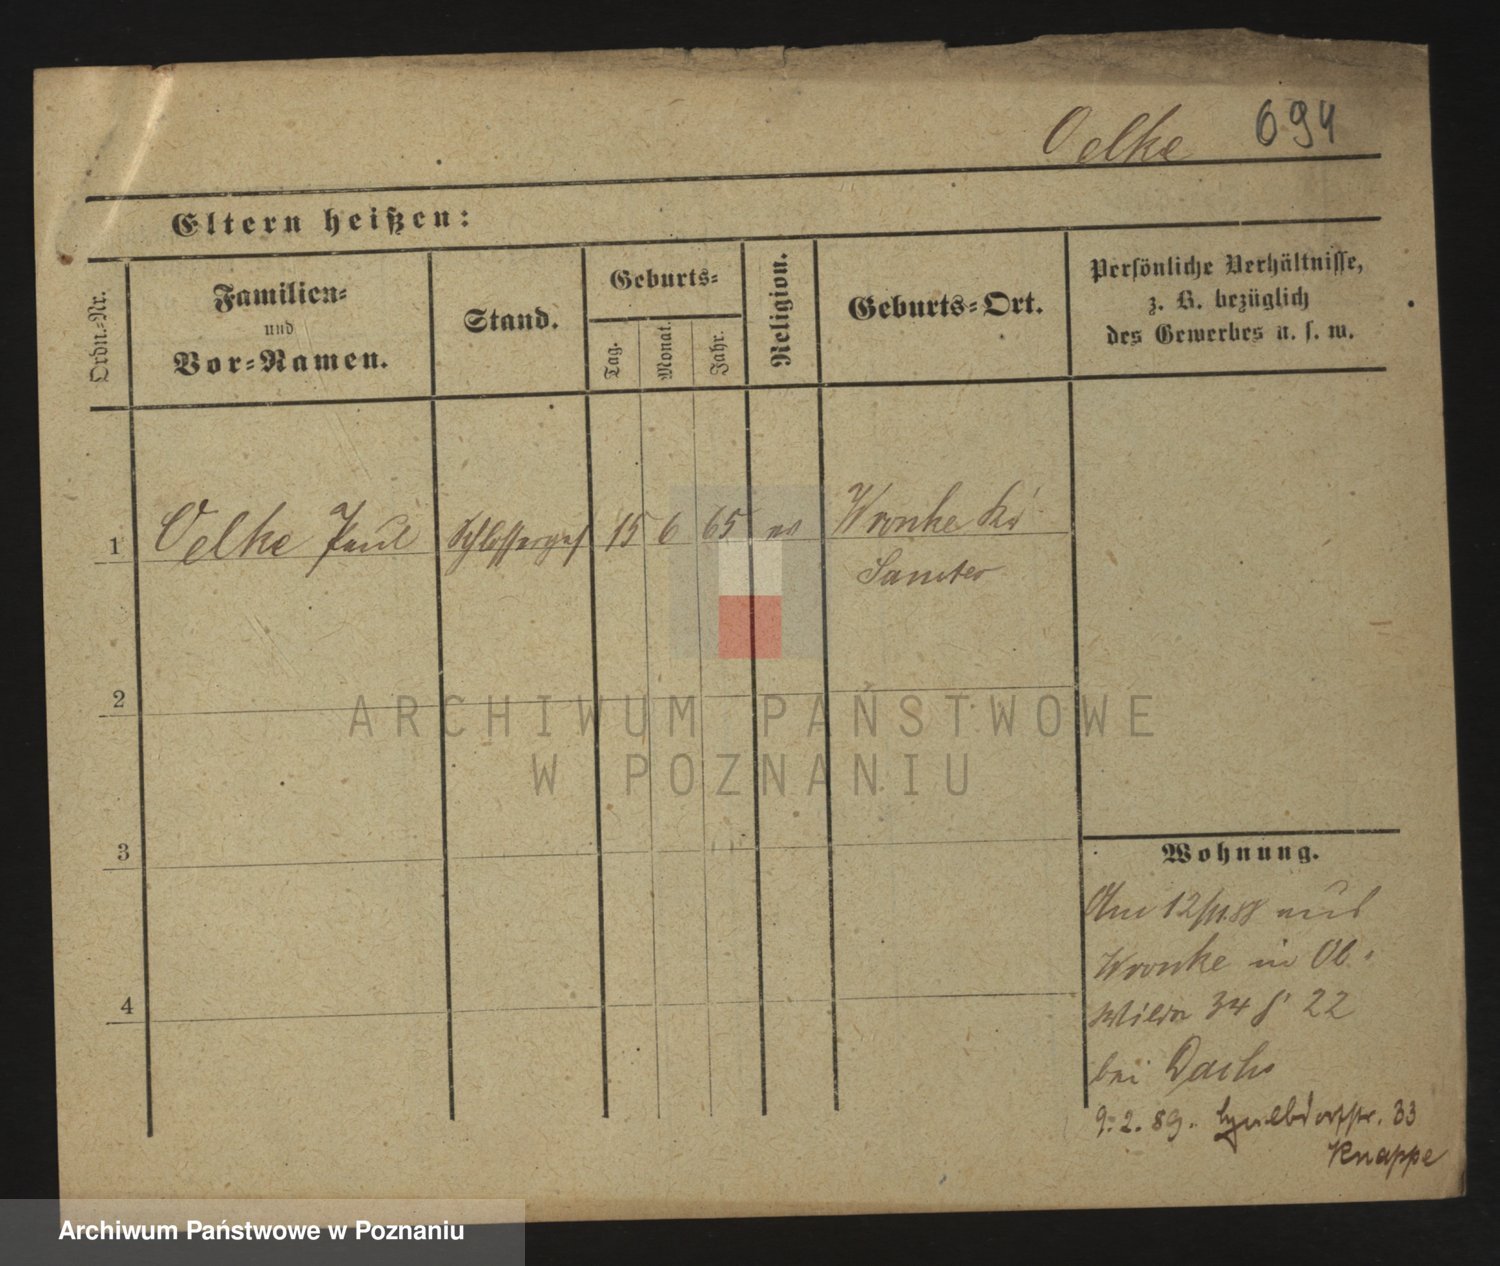 Oelke 694
Eltern heißen:
Ordn.-Nr.
Familien-
und
Vor-Namen.
Stand.
Geburts-
Tag.
Monat.
Jahr.
Religion.
Geburts-Ort.
Persönliche Verhältnisse,
z. B. bezüglich
des Gewerbes u. s. w.
1 Oelke Paul Schlosserges 15 6 65 ev Wronke Kr
Samter
2
3
4
ARCHIWUM PAŃSTWOWE
W POZNANIU
Wohnung.
Am 12/11.88 aus
Wronke in Ob.
Wilda 34 22
bei Dachs
9.2.89. 33
Knappe
Archiwum Państwowe w Poznaniu